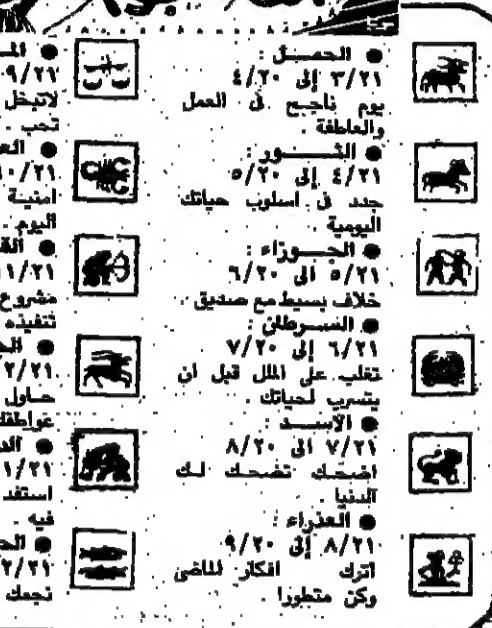 ● الحمـــل :
٣/٢١ إلى ٤/٢٠
يوم ناجح فى العمل
والعاطفة .
● الثـــور :
٤/٢١ إلى ٥/٢٠
جدد فى اسلوب حياتك
اليومية .
● الجـــوزاء :
٥/٢١ الى ٦/٢٠
خلاف بسيط مع صديق .
● السـرطان :
٦/٢١ إلى ٧/٢٠
تغلب على الملل قبل ان
يتسرب لحياتك .
● الأســـد :
٧/٢١ الى ٨/٢٠
اضحك تضحك لك
الدنيا .
● العذراء :
٨/٢١ إلى ٩/٢٠
اترك افكار الماضى
وكن متطورا .
● 
٩/٢١
لاتبخل
تحب .
● 
٠/٢١
امنية
اليوم .
● 
١/٢١
مشروع
تنفيذه
● 
٢/٢١
حاول
عواطفك
● 
١/٢١
استفد
فيه .
● 
٢/٢١
نجمك